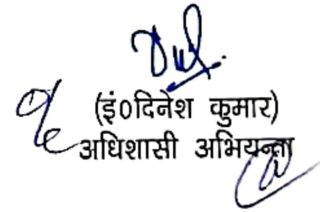 (इं०दिनेश कुमार)
अधिशासी अभियन्ता